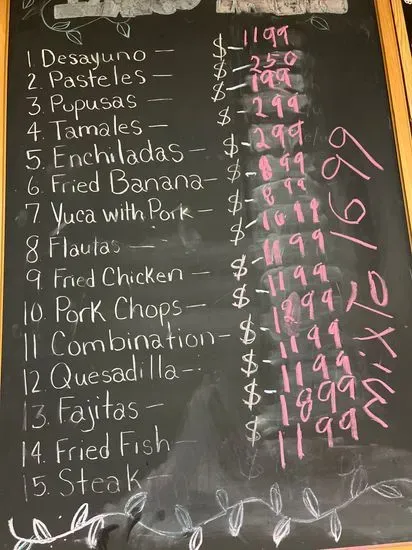 1 Desayuno — $-1199
2. Pasteles — $-250
3. Pupusas — $-199
4. Tamales — $-299
5. Enchiladas — $-299
6 Fried Banana — $-899
7. Yuca with Pork — $-899
8 Flautas — $-1099
9. Fried Chicken — $-1199
10. Pork Chops — $-1199
11 Combination — $-1299
12. Quesadilla — $-1199
13. Fajitas — $-1199
14. Fried Fish — $-1899
15. Steak — $ 1199
Mixto 16 99